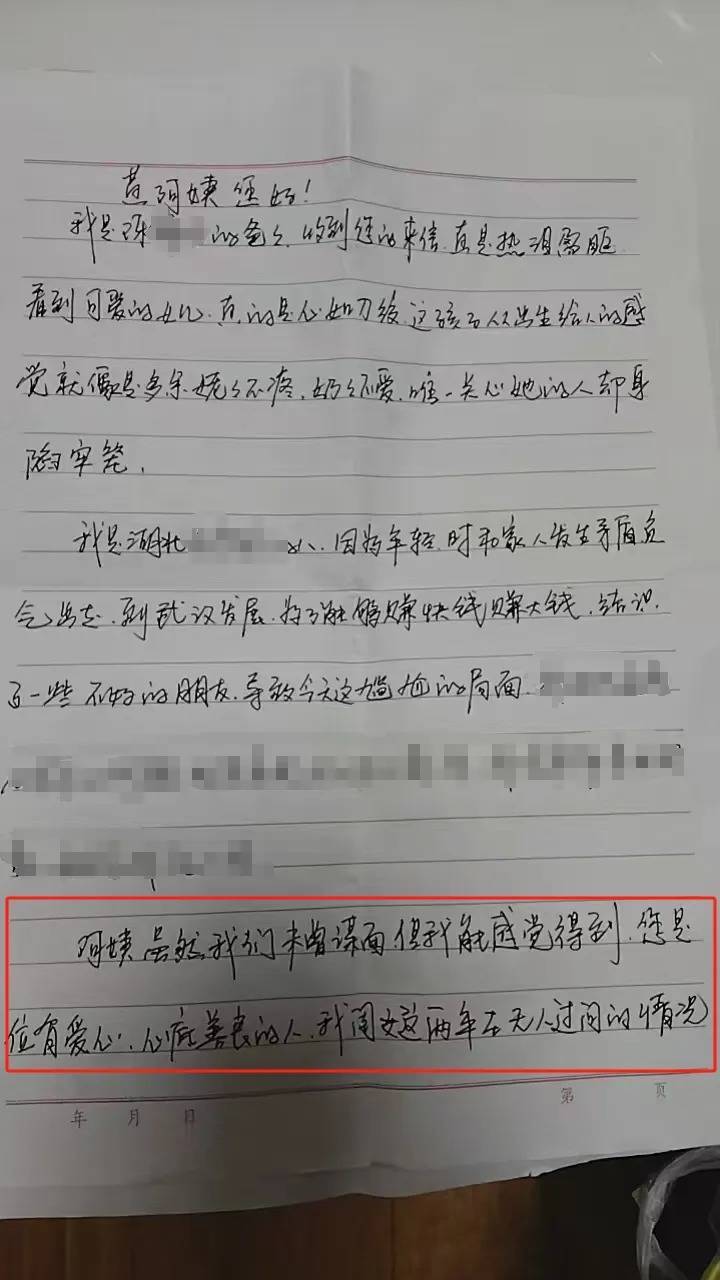 黄阿姨您好!
我是陈 的爸爸,收到您的来信,真是热泪盈眶
看到可爱的女儿,真的是心如刀绞,这孩子从出生给人的感
觉就像是多余,姥姥不疼,奶奶不爱,唯一关心她的人却身
陷牢笼,
我是湖北 人,因为年轻时和家人发生矛盾负
气出走,到武汉发展,为了能够赚快钱赚大钱,结识
了一些不好的朋友,导致今天这尴尬的局面,
阿姨虽然我们未曾谋面但我能感觉得到,您是
位有爱心,心底善良的人,我闺女这两年在无人过问的情况
年 月 日 第 页